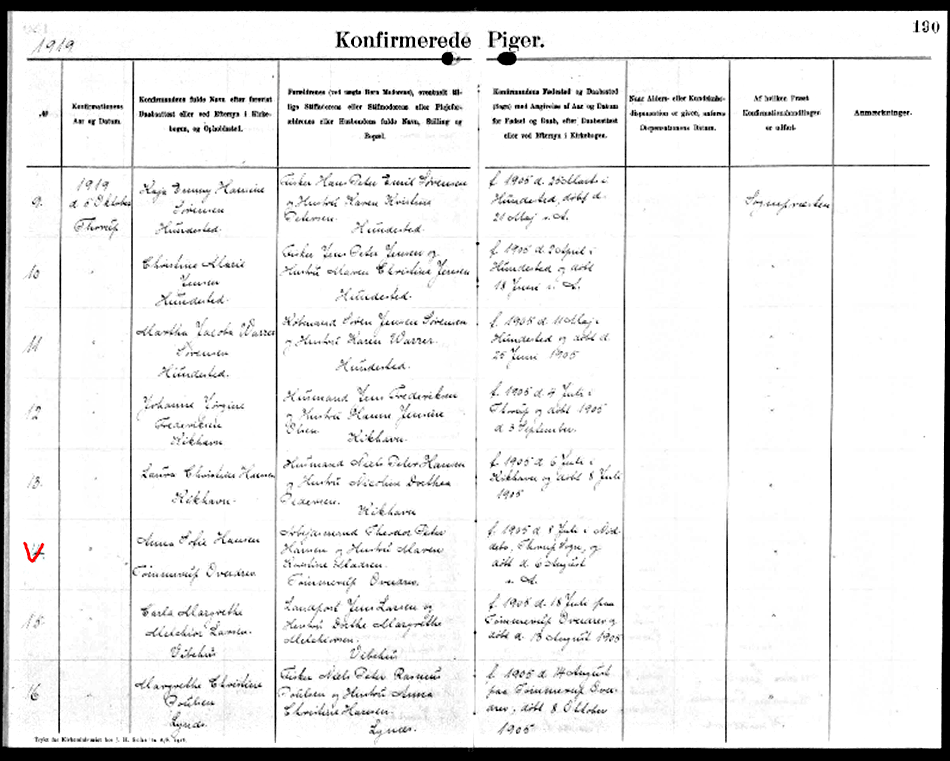 1919
Konfirmerede Piger.
190
№
Konfirmationens
Aar og Datum.
Konfirmandens fulde Navn efter forevist
Daabsattest eller ved Eftersyn i Kirke-
bogen, og Opholdssted.
Forældrenes (ved uægte Børn Moderens), eventuelt til-
lige Stiffaderens eller Stifmoderens eller Plejefor-
ældrenes eller Husbondens fulde Navn, Stilling og
Bopæl.
Konfirmandens Fødested og Daabssted
(Sogn) med Angivelse af Aar og Datum
for Fødsel og Daab, efter Daabsattest
eller ved Eftersyn i Kirkebogen.
Naar Alders- eller Kundskabs-
dispensation er given, anføres
Dispensationens Datum.
Af hvilken Præst
Konfirmationshandlingen
er udført.
Anmærkninger.
9.
1919
d. 5 Oktober
Thorup
Kaja Hansine
Sørensen
Hundested.
Fisker Hans Peter Emil Sørensen
og Hustru Karen Kristine
Petersen.
Hundested.
f. 1905 d. 25 Marts i
Hundested, døbt d.
21 Maj s. A.
Sognepræsten
10
"
Christine Marie
Jensen
Hundested.
Fisker Jens Peter Jensen og
Hustru Maren Christine Jensen
Hundested.
f. 1905 d. 2 April i
Hundested og døbt
18 Juni s. A.
"
11
"
Martha Jacoba Warrer
Sørensen
Hundested.
Købmand Søren Jensen Sørensen
og Hustru Karen Warrer
Hundested.
f. 1905 d. 11 Maj i
Hundested og døbt d.
25 Juni 1905
"
12
"
Johanne Jørgine
Frederiksen
Kikhavn
Husmand Jens Frederiksen
og Hustru Hanne Jensine
Olsen
Kikhavn.
f. 1905 d. 4 Juli i
Thorup og døbt 1905
d. 3 September.
"
13.
"
Laura Christine Hansen
Kikhavn.
Husmand Niels Peter Hansen
og Hustru Nicoline Dorthea
Pedersen.
Kikhavn
f. 1905 d. 6 Juli i
Kikhavn og døbt 8 Juli
1905
"
V
"
Anna Sofie Hansen
Tømmerup Overdrev
Arbejdsmand Theodor Peter
Hansen og Hustru Maren
Madsen.
Tømmerup Overdrev.
f. 1905 d. 8 Juli i
Thorup Sogn, og
døbt d. 6 August
s. A.
"
15.
"
Carla Margrethe
Melchior Larsen.
Vibehus
Jens Larsen og
Hustru Dorthe Margrethe
Melchiorsen.
Vibehus
f. 1905 d. 18 Juli paa
Tømmerup Overdrev og
døbt d. 13 August 1905
"
16
"
Margrethe Christine
Poulsen
Lynæs.
Fisker Niels Peter Rasmus
Poulsen og Hustru Anna
Christine Hansen.
Lynæs.
f. 1905 d. 14 August
paa Tømmerup Over-
drev, døbt 8 Oktober
1905
"